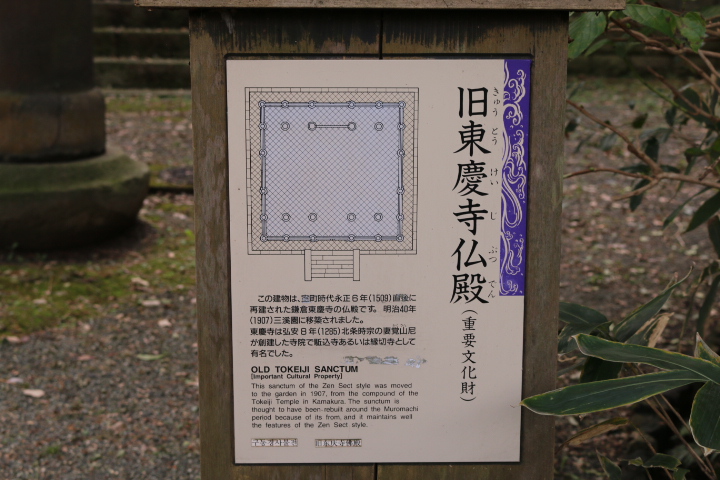 旧東慶寺仏殿
きゅう とう けい じ ぶつ でん
(重要文化財)
この建物は、室町時代永正6年(1509)直後に
再建された鎌倉東慶寺の仏殿です。明治40年
(1907)三溪園に移築されました。
東慶寺は弘安8年(1285)北条時宗の妻覚山尼
が創建した寺院で駈込寺あるいは縁切寺として
有名でした。
OLD TOKEIJI SANCTUM
[Important Cultural Property]
This sanctum of the Zen Sect style was moved
to the garden in 1907, from the compound of the
Tokeiji Temple in Kamakura. The sunctum is
thought to have been rebuilt around the Muromachi
period because of its from, and it maintains well
the features of the Zen Sect style.